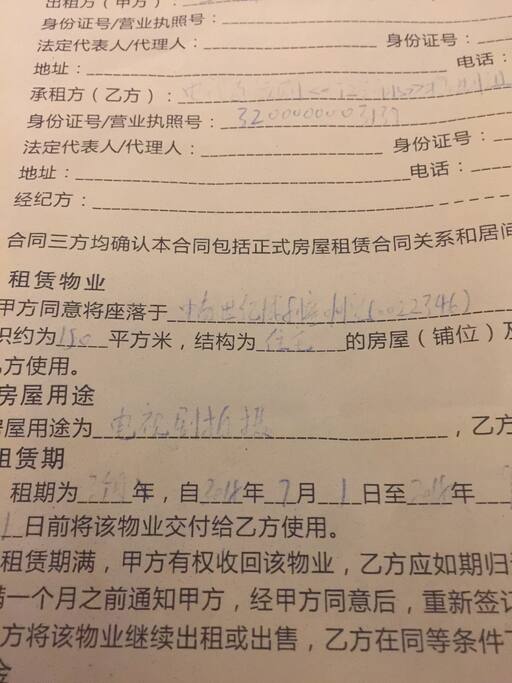 出租方（甲方）：
身份证号/营业执照号：
法定代表人/代理人： 身份证号：
地址： 电话：
承租方（乙方）：
身份证号/营业执照号：
法定代表人/代理人： 身份证号：
地址： 电话：
经纪方：
合同三方均确认本合同包括正式房屋租赁合同关系和居间
租赁物业
甲方同意将座落于
积约为150平方米，结构为住宅的房屋（铺位）及
乙方使用。
房屋用途
房屋用途为电视剧拍摄，乙方
租赁期
租期为 年，自2018年7月1日至2018年
1日前将该物业交付给乙方使用。
租赁期满，甲方有权收回该物业，乙方应如期归
满一个月之前通知甲方，经甲方同意后，重新签订
方将该物业继续出租或出售，乙方在同等条件下
金